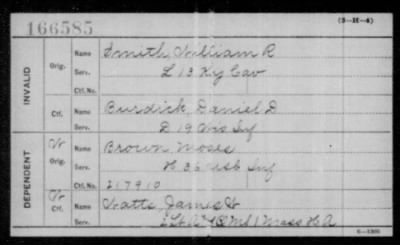 166585
(3-H-4)
INVALID
Orig.
Name Smith, William R
Serv. L 13 Ky Cav
Ctf. No.
Ctf.
Name Burdick, Daniel D
Serv. D 19 Wis Inf
DEPENDENT
W
Orig.
Name Brown, Moses
Serv. H 36 Inf
Ctf. No. 217910
W
Ctf.
Name Watts, James W
Serv. 1 Mass H A